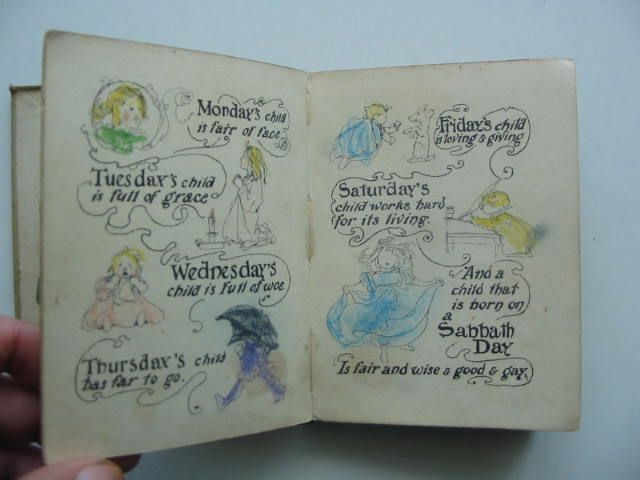 Monday's child
is fair of face
Tuesday's child
is full of grace
Wednesday's
child is full of woe.
Thursday's child
has far to go.
Friday's child
is loving & giving
Saturday's
child works hard
for its living.
And a
child that
is born on
a
Sabbath
Day
Is fair and wise & good & gay.